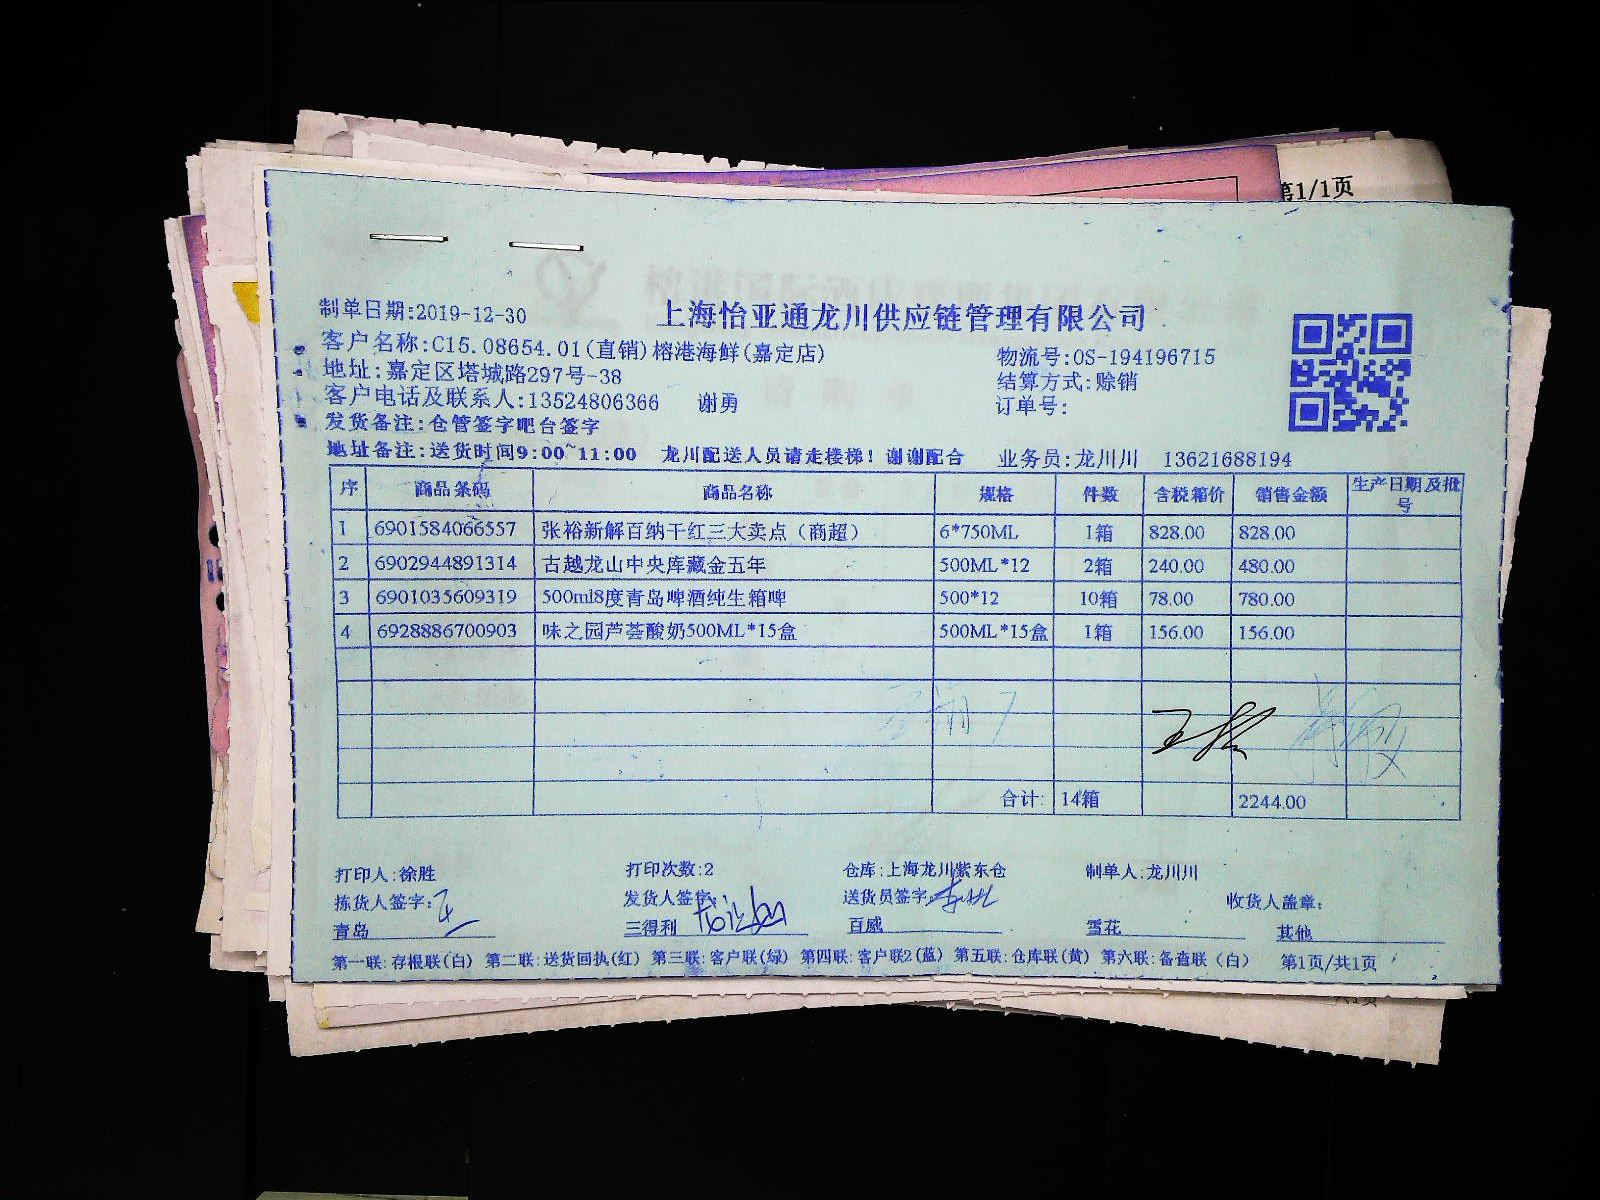 第1/1页
制单日期:2019-12-30
上海怡亚通龙川供应链管理有限公司
客户名称:C15.08654.01(直销)榕港海鲜(嘉定店)
物流号:OS-194196715
地址:嘉定区塔城路297号-38
结算方式:赊销
客户电话及联系人:13524806366 谢勇
订单号:
发货备注:仓管签字吧台签字
地址备注:送货时间9:00~11:00 龙川配送人员请走楼梯！谢谢配合 业务员:龙川川 13621688194
序 商品条码 商品名称 规格 件数 含税箱价 销售金额 生产日期及批号
1 6901584066557 张裕新解百纳干红三大卖点（商超） 6*750ML 1箱 828.00 828.00
2 6902944891314 古越龙山中央库藏金五年 500ML*12 2箱 240.00 480.00
3 6901035609319 500ml8度青岛啤酒纯生箱啤 500*12 10箱 78.00 780.00
4 6928886700903 味之园芦荟酸奶500ML*15盒 500ML*15盒 1箱 156.00 156.00
合计: 14箱 2244.00
打印人:徐胜 打印次数:2 仓库:上海龙川紫东仓 制单人:龙川川
拣货人签字: 发货人签字: 送货员签字: 收货人盖章:
青岛 三得利 百威 雪花 其他
第一联:存根联(白) 第二联:送货回执(红) 第三联:客户联(绿) 第四联:客户联2(蓝) 第五联:仓库联(黄) 第六联:备查联（白） 第1页/共1页